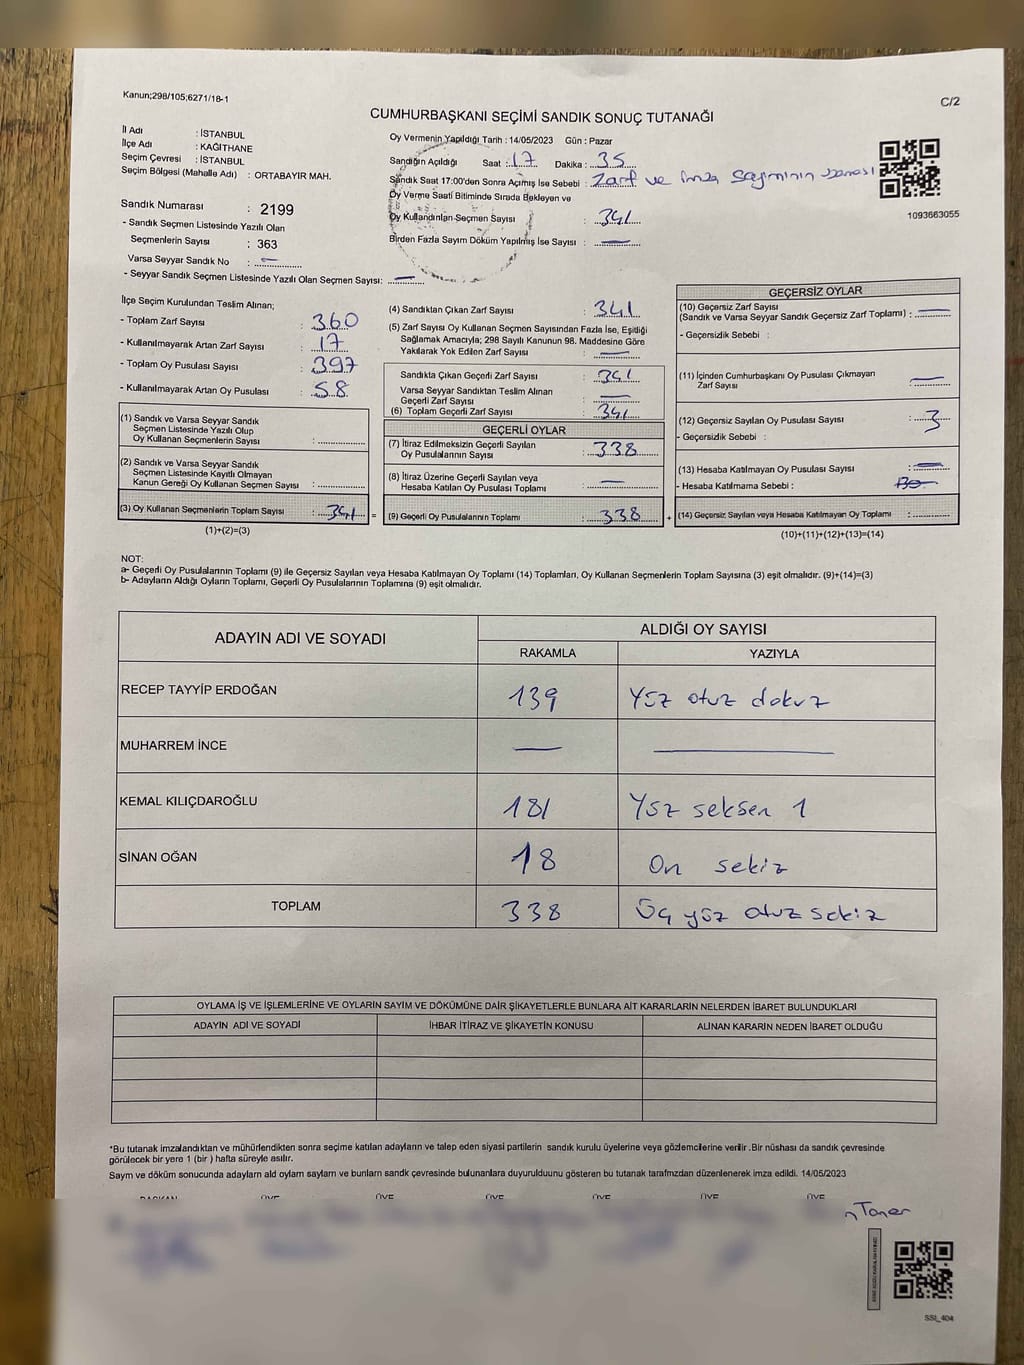 Kanun;298/105;6271/18-1
C/2
CUMHURBAŞKANI SEÇİMİ SANDIK SONUÇ TUTANAĞI
İl Adı : İSTANBUL
İlçe Adı : KAĞITHANE
Seçim Çevresi : İSTANBUL
Seçim Bölgesi (Mahalle Adı) : ORTABAYIR MAH.
Sandık Numarası : 2199
- Sandık Seçmen Listesinde Yazılı Olan
Seçmenlerin Sayısı : 363
Varsa Seyyar Sandık No : —
- Seyyar Sandık Seçmen Listesinde Yazılı Olan Seçmen Sayısı: —
Oy Vermenin Yapıldığı Tarih : 14/05/2023 Gün : Pazar
Sandığın Açıldığı Saat : 17 Dakika : 35
Sandık Saat 17:00'den Sonra Açımış İse Sebebi : Zarf ve imza sayımının
Oy Verme Saati Bitiminde Sırada Bekleyen ve
Oy Kullandırılan Seçmen Sayısı : 341
Birden Fazla Sayım Döküm Yapılmış İse Sayısı : —
1093663055
İlçe Seçim Kurulundan Teslim Alınan;
- Toplam Zarf Sayısı : 360
- Kullanılmayarak Artan Zarf Sayısı : 17
- Toplam Oy Pusulası Sayısı : 397
- Kullanılmayarak Artan Oy Pusulası : 58
(1) Sandık ve Varsa Seyyar Sandık
Seçmen Listesinde Yazılı Olup
Oy Kullanan Seçmenlerin Sayısı :
(2) Sandık ve Varsa Seyyar Sandık
Seçmen Listesinde Kayıtlı Olmayan
Kanun Gereği Oy Kullanan Seçmen Sayısı :
(3) Oy Kullanan Seçmenlerin Toplam Sayısı : 341 =
(1)+(2)=(3)
(4) Sandıktan Çıkan Zarf Sayısı : 341
(5) Zarf Sayısı Oy Kullanan Seçmen Sayısından Fazla İse, Eşitliği
Sağlamak Amacıyla; 298 Sayılı Kanunun 98. Maddesine Göre
Yakılarak Yok Edilen Zarf Sayısı : —
Sandıkta Çıkan Geçerli Zarf Sayısı : 341
Varsa Seyyar Sandıktan Teslim Alınan
Geçerli Zarf Sayısı : —
(6) Toplam Geçerli Zarf Sayısı : 341
GEÇERLİ OYLAR
(7) İtiraz Edilmeksizin Geçerli Sayılan
Oy Pusulalarının Sayısı : 338
(8) İtiraz Üzerine Geçerli Sayılan veya
Hesaba Katılan Oy Pusulası Toplamı : —
(9) Geçerli Oy Pusulalarının Toplamı : 338 +
GEÇERSİZ OYLAR
(10) Geçersiz Zarf Sayısı
(Sandık ve Varsa Seyyar Sandık Geçersiz Zarf Toplamı) : —
- Geçersizlik Sebebi :
(11) İçinden Cumhurbaşkanı Oy Pusulası Çıkmayan
Zarf Sayısı : —
(12) Geçersiz Sayılan Oy Pusulası Sayısı : 3
- Geçersizlik Sebebi :
(13) Hesaba Katılmayan Oy Pusulası Sayısı : —
- Hesaba Katılmama Sebebi :
(14) Geçersiz Sayılan veya Hesaba Katılmayan Oy Toplamı :
(10)+(11)+(12)+(13)=(14)
NOT:
a- Geçerli Oy Pusulalarının Toplamı (9) ile Geçersiz Sayılan veya Hesaba Katılmayan Oy Toplamı (14) Toplamları, Oy Kullanan Seçmenlerin Toplam Sayısına (3) eşit olmalıdır. (9)+(14)=(3)
b- Adayların Aldığı Oyların Toplamı, Geçerli Oy Pusulalarının Toplamına (9) eşit olmalıdır.
ADAYIN ADI VE SOYADI
ALDIĞI OY SAYISI
RAKAMLA YAZIYLA
RECEP TAYYİP ERDOĞAN 139 Yüz otuz dokuz
MUHARREM İNCE — —
KEMAL KILIÇDAROĞLU 181 Yüz seksen 1
SİNAN OĞAN 18 On sekiz
TOPLAM 338 Üç yüz otuz sekiz
OYLAMA İŞ VE İŞLEMLERİNE VE OYLARIN SAYIM VE DÖKÜMÜNE DAİR ŞİKAYETLERLE BUNLARA AİT KARARLARIN NELERDEN İBARET BULUNDUKLARI
ADAYIN ADI VE SOYADI İHBAR İTİRAZ VE ŞİKAYETİN KONUSU ALINAN KARARIN NEDEN İBARET OLDUĞU
*Bu tutanak imzalandıktan ve mühürlendikten sonra seçime katılan adayların ve talep eden siyasi partilerin sandık kurulu üyelerine veya gözlemcilerine verilir .Bir nüshası da sandık çevresinde
görülecek bir yere 1 (bir ) hafta süreyle asılır.
Saym ve döküm sonucunda adaylarn ald oylarn saylarn ve bunlarn sandk çevresinde bulunanlara duyurulduunu gösteren bu tutanak tarafmzdan düzenlenerek imza edildi. 14/05/2023
BAŞKAN ÜYE ÜYE ÜYE ÜYE ÜYE ÜYE
Taner
SSI_404